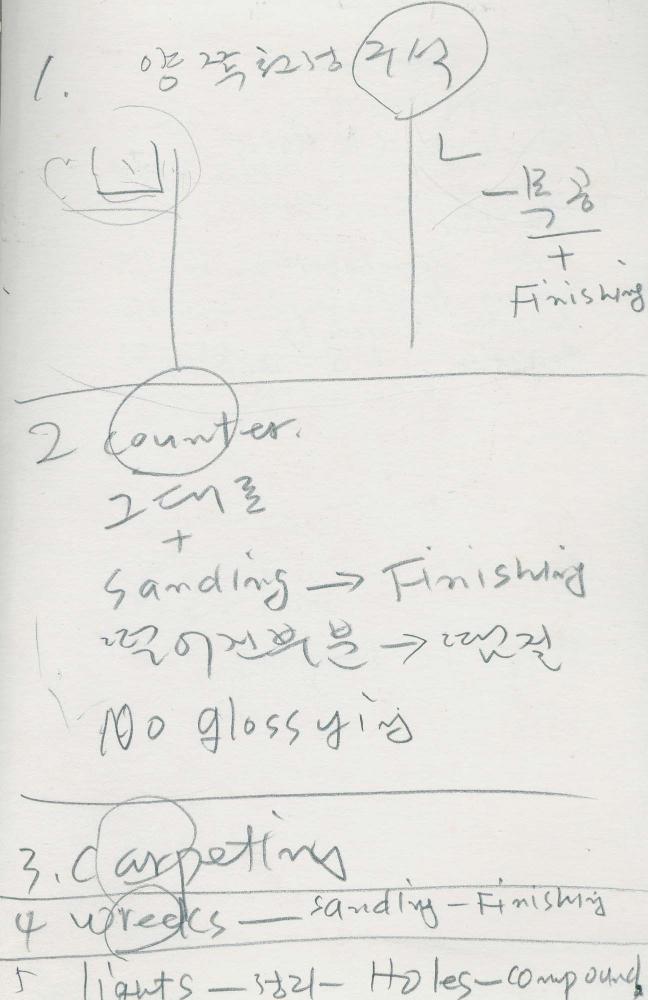 1. 양쪽 화장 구석
ㄴ
- 목공
+
Finishing
2 counter.
그대로
+
sanding → Finishing
떨어진부분 → 땜질
No glossying
3. Carpeting
4 wrecks — sanding - Finishing
5 lights — 정리 - Holes - compound